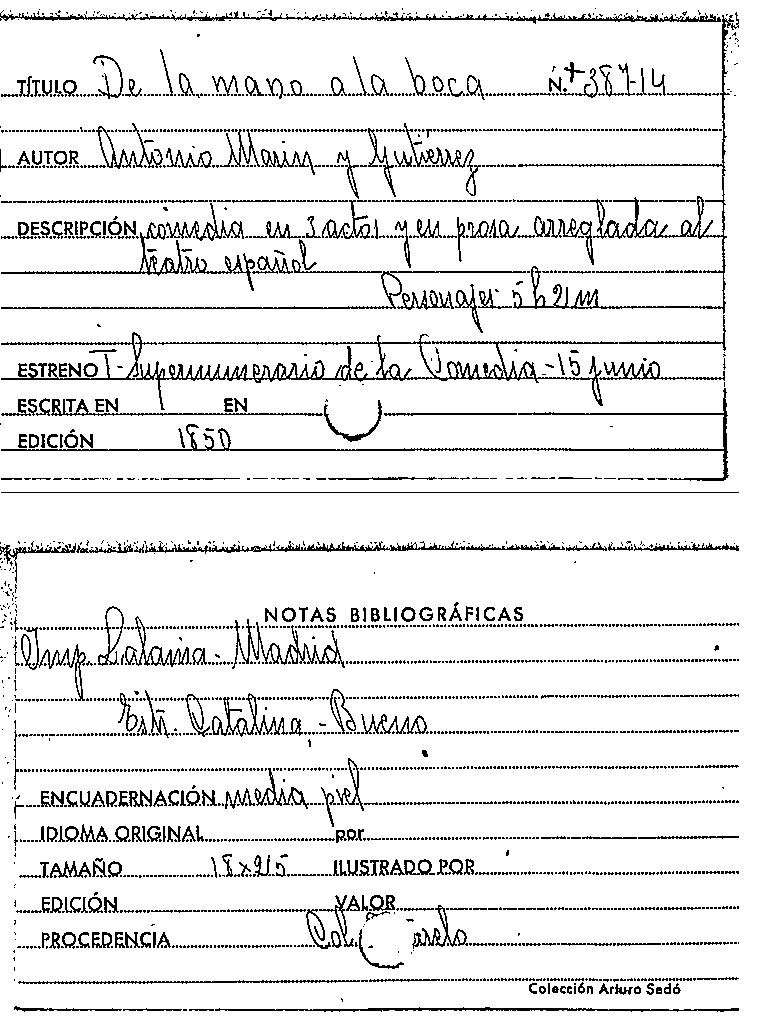 TÍTULO De la mano a la boca N.º 387-14
AUTOR Antonio Marin y Gutiérrez
DESCRIPCIÓN comedia en 3 actos y en prosa arreglada al
teatro español
Personajes 5 h 2 m
ESTRENO T. Supernumerario de la Comedia - 15 junio
ESCRITA EN EN
EDICIÓN 1850
NOTAS BIBLIOGRÁFICAS
Imp. Lalama - Madrid
Estr. Catalina - Bueno
ENCUADERNACIÓN media piel
IDIOMA ORIGINAL por
TAMAÑO 18x215 ILUSTRADO POR
EDICIÓN VALOR
PROCEDENCIA Col.
Colección Arturo Sedó